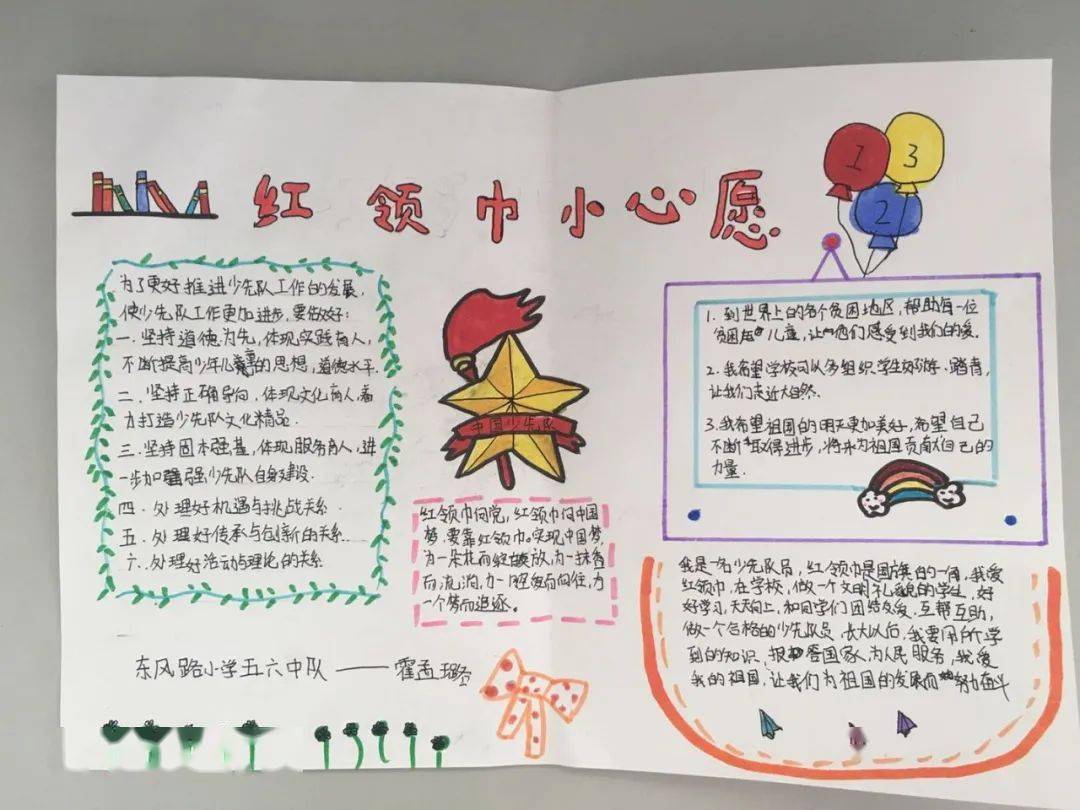 红领巾小心愿
为了更好推进少先队工作的发展,
使少先队工作更加进步,要做好:
一.坚持道德为先,体现实践育人,
不断提高少年儿童的思想,道德水平.
二.坚持正确导向,体现文化育人,着
力打造少先队文化精品.
三.坚持固本强基,体现服务育人,进
一步加强少先队自身建设.
四.处理好机遇与挑战关系.
五.处理好传承与创新的关系.
六.处理好活动与理论的关系
东风路小学五六中队——霍孟璐
中国少先队
红领巾向党,红领巾向中国
梦,要靠红领巾。实现中国梦,
为一朵花而绽放,为一抹香
而流淌,为一程约而向往,为
一个梦而追逐。
1
3
2
1.到世界上的各个贫困地区,帮助每一位
贫困的儿童,让他们感受到我们的爱.
2.我希望学校可以多组织学生郊游.踏青,
让我们走近大自然.
3.我希望祖国的明天更加美好,希望自己
不断取得进步,将来为祖国贡献自己的
力量.
我是一名少先队员,红领巾是国旗的一角,我爱
红领巾,在学校,做一个文明礼貌的学生,好
好学习,天天向上,和同学们团结友爱,互帮互助,
做一个合格的少先队员.长大以后,我要用所学
到的知识,报答国家,为人民服务,我爱
我的祖国,让我们为祖国的发展而努力奋斗